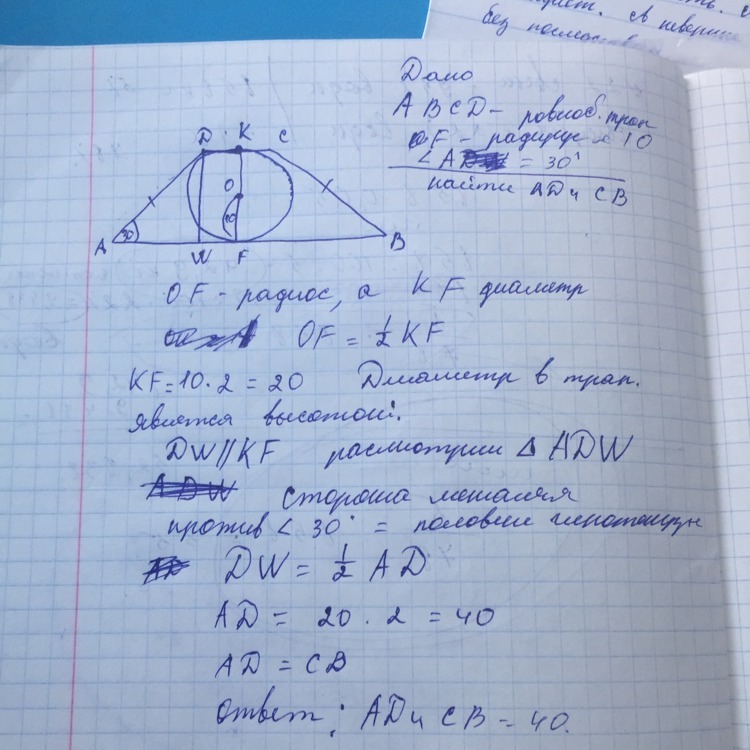 без
Дано
ABCD - ровноб. трап
OF - радиус = 10
∠A = 30°
найти AD и CB
D K C
O
30 10
A W F B
OF - радиос, а KF диаметр
OF = 1/2 KF
KF = 10 · 2 = 20 Диаметр в трап.
является высотой.
DW // KF расмотрим Δ ADW
сторона лежащая
против ∠ 30° = половине гипотенузы
DW = 1/2 AD
AD = 20 · 2 = 40
AD = CB
ответ: AD и CB = 40.